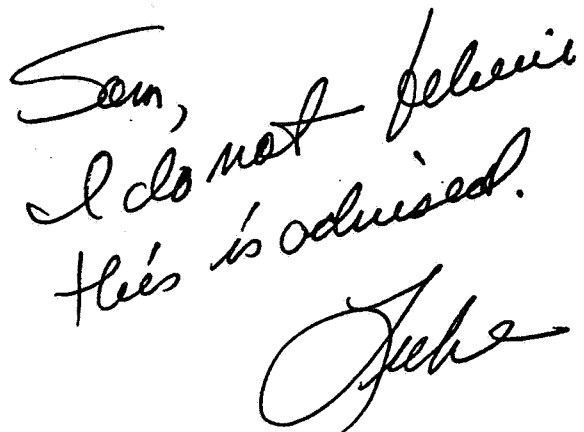 Sam,
I do not believe
this is advised.
Luke